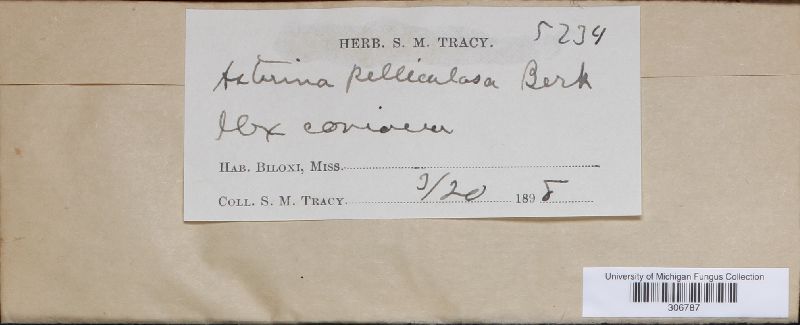 HERB. S. M. TRACY. 5234
Asterina pelliculosa Berk
Ilex coriacea
HAB. BILOXI, MISS.
COLL. S. M. TRACY. 3/20 1898
University of Michigan Fungus Collection
306787